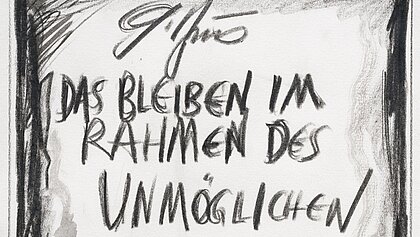 DAS BLEIBEN IM
RAHMEN DES
UNMÖGLICHEN